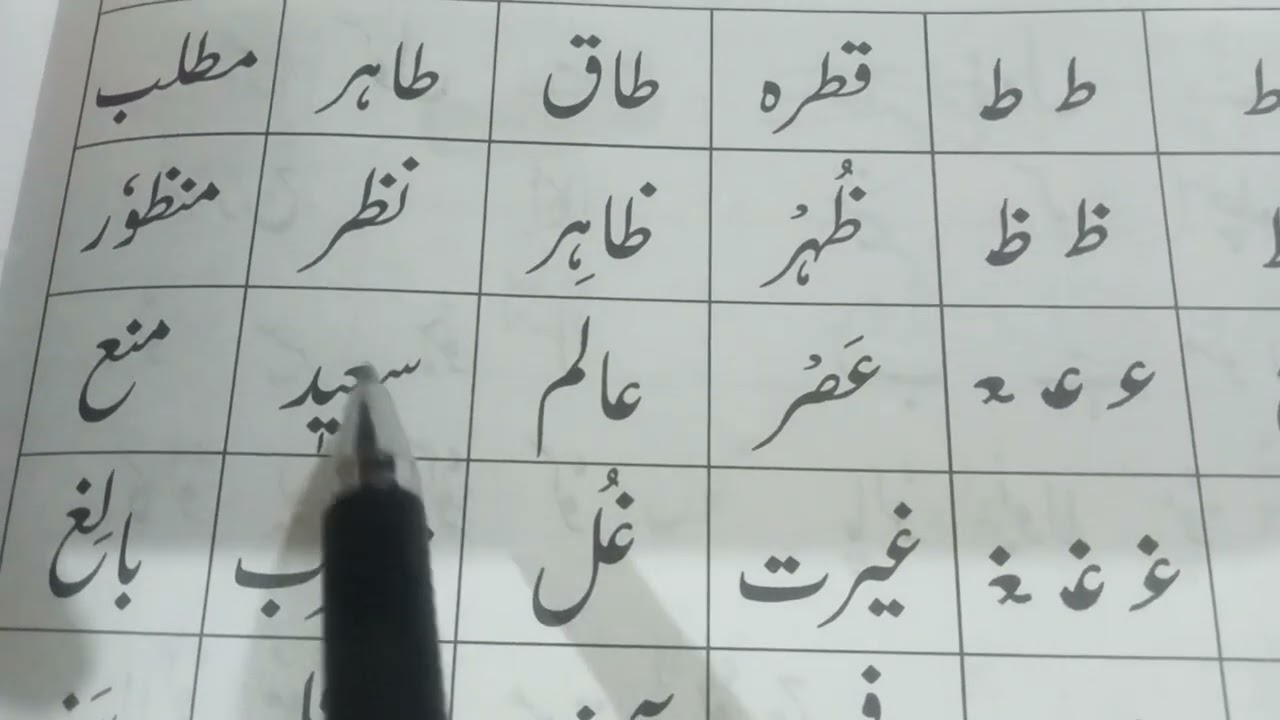 ط ط ط قطرہ طاق طاہر مطلب
ظ ظ ظُہْر ظاہِر نظر منظوٗر
ع ع ع عَصْر عالم سعیٖد منع
غ غ غ غیرت غُل بالِغ